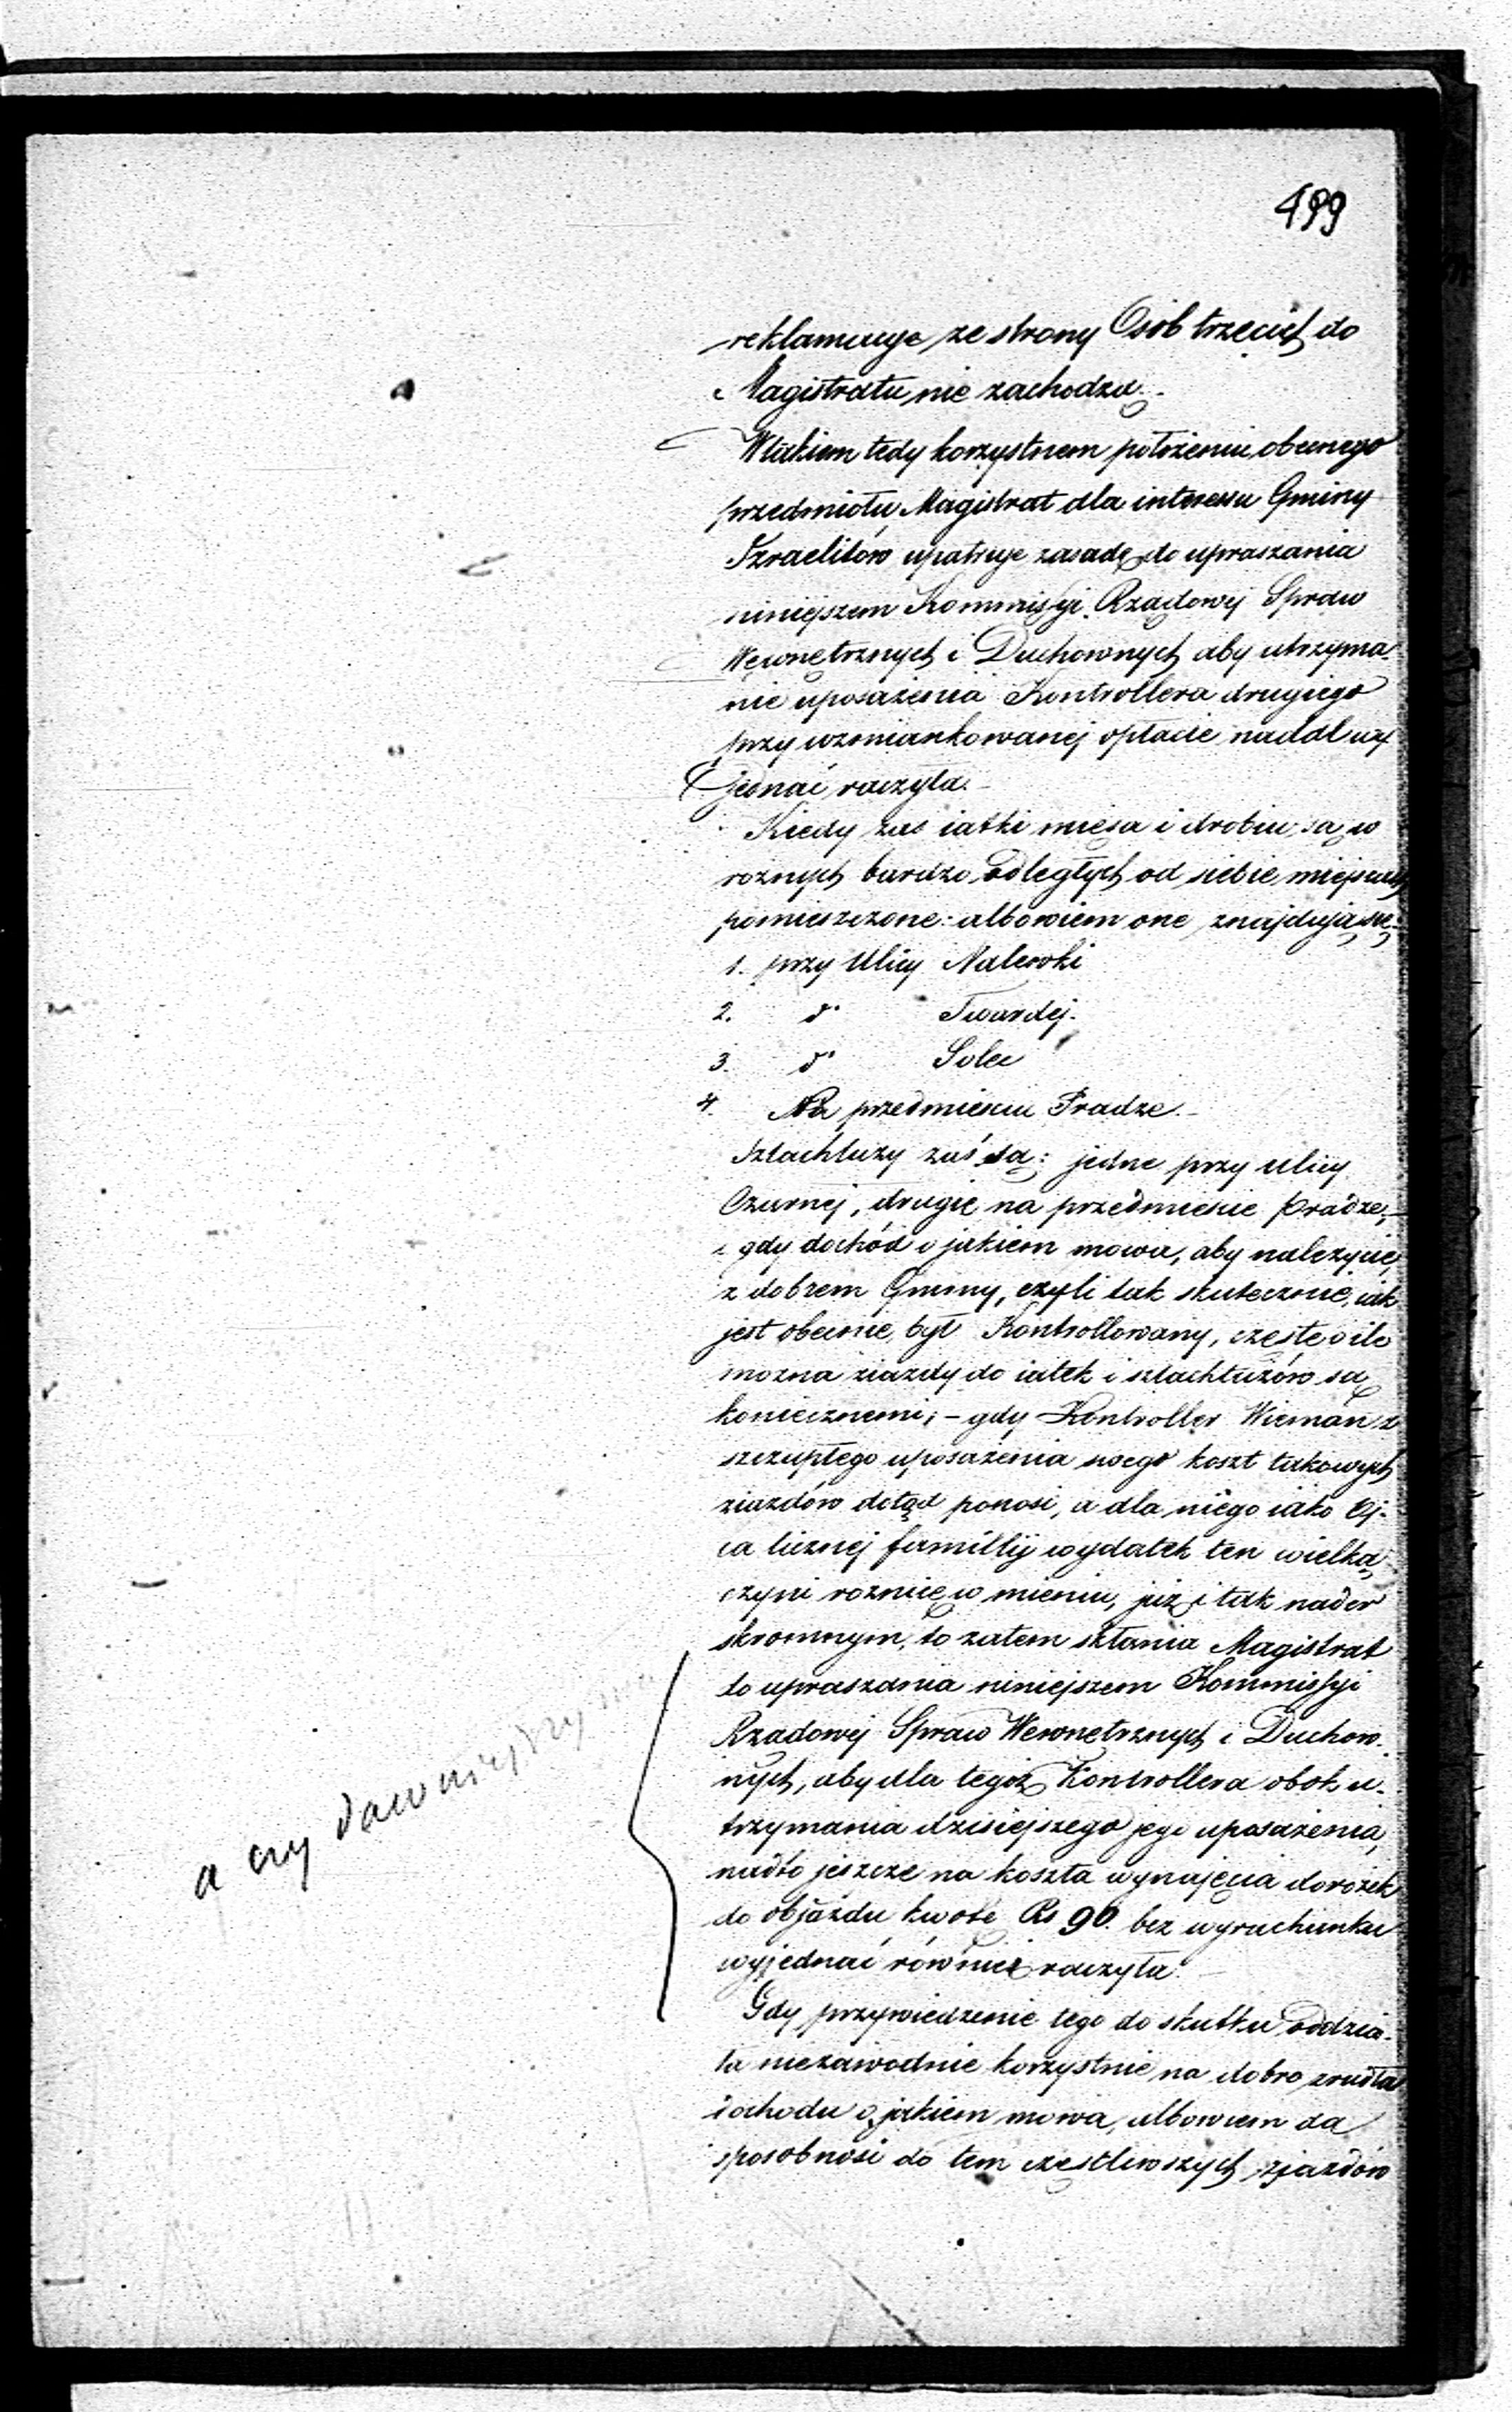 499
reklamacye ze strony Osób trzecich do
Magistratu nie zachodzą.-
W takiem tedy korzystnem położeniu obecnego
przedmiotu Magistrat dla interessu Gminy
Izraelitów upatruje zasadę do upraszania
niniejszem Kommissyi Rządowej Spraw
Wewnętrznych i Duchownych aby utrzyma-
nie uposażenia Kontrollera drugiego
przy wzmiankowanej opłacie nadal wy
jednać raczyła.-
Kiedy zaś iatki mięsa i drobiu są w
roznych bardzo odległych od siebie miejscach
pomieszczone: albowiem one znajdują się:
1. przy Ulicy Nalewki
2. do Twardej.
3. do Solec
4. Na przedmieściu Pradze.-
Szlachtuzy zaś są: jedne przy ulicy
Czarnej, drugie na przedmieście Pradze,-
i gdy dochód o jakiem mowa, aby należycie,
z dobrem Gminy, czyli tak skutecznie, iak
jest obecnie, był Kontrollowany, częste o ile
mozna ziazdy do iatek i szlachtuzów są
koniecznemi; - gdy Kontroller Wieman z
szczupłego uposażenia swego koszt takowych
ziazdów dotąd ponosi, a dla niego iako Oj-
ca licznej familly wydatek ten wielką
czyni roznicę w mieniu, już i tak nader
skromnym, to zatem skłania Magistrat
do upraszania niniejszem Kommissyi
Rządowej Spraw Wewnętrznych i Duchow-
nych, aby dla tegoż Kontrollera obok u-
trzymania dzisiejszego jego uposażenia,
nadto jeszcze na koszta wynajęcia dorożek
do objazdu kwotę Rs 90. bez wyrachunku
wyjednać również raczyła.-
Gdy przywiedzenie tego do skutku oddzia-
ła niezawodnie korzystnie na dobro zrudła
dochodu o jakiem mowa, albowiem da
sposobność do tem częstliwszych zjazdów
a czy dawniej